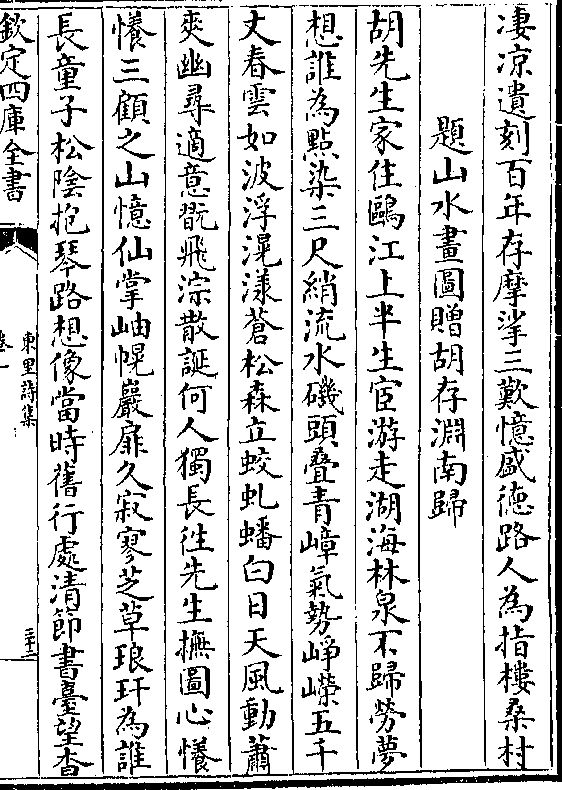 凄凉遺刻百年存摩挲三歎憶盛徳路人為指樓桑村
題山水畫圖贈胡存淵南歸
胡先生家住鷗江上半生宦游走湖海林泉不歸勞夢
想誰為點染三尺綃流水磯頭疊青嶂氣勢崢嶸五千
丈春雲如波浮滉漾蒼松森立蛟虬蟠白日天風動蕭
爽幽尋適意翫飛淙散誕何人獨長徃先生撫圖心懩
懩三顧之山憶仙掌岫幌巖扉久寂寥芝草琅玕為誰
長童子松陰抱琴路想像當時舊行處清節書臺望杳
欽定四庫全書
東里詩集
卷一
三十二